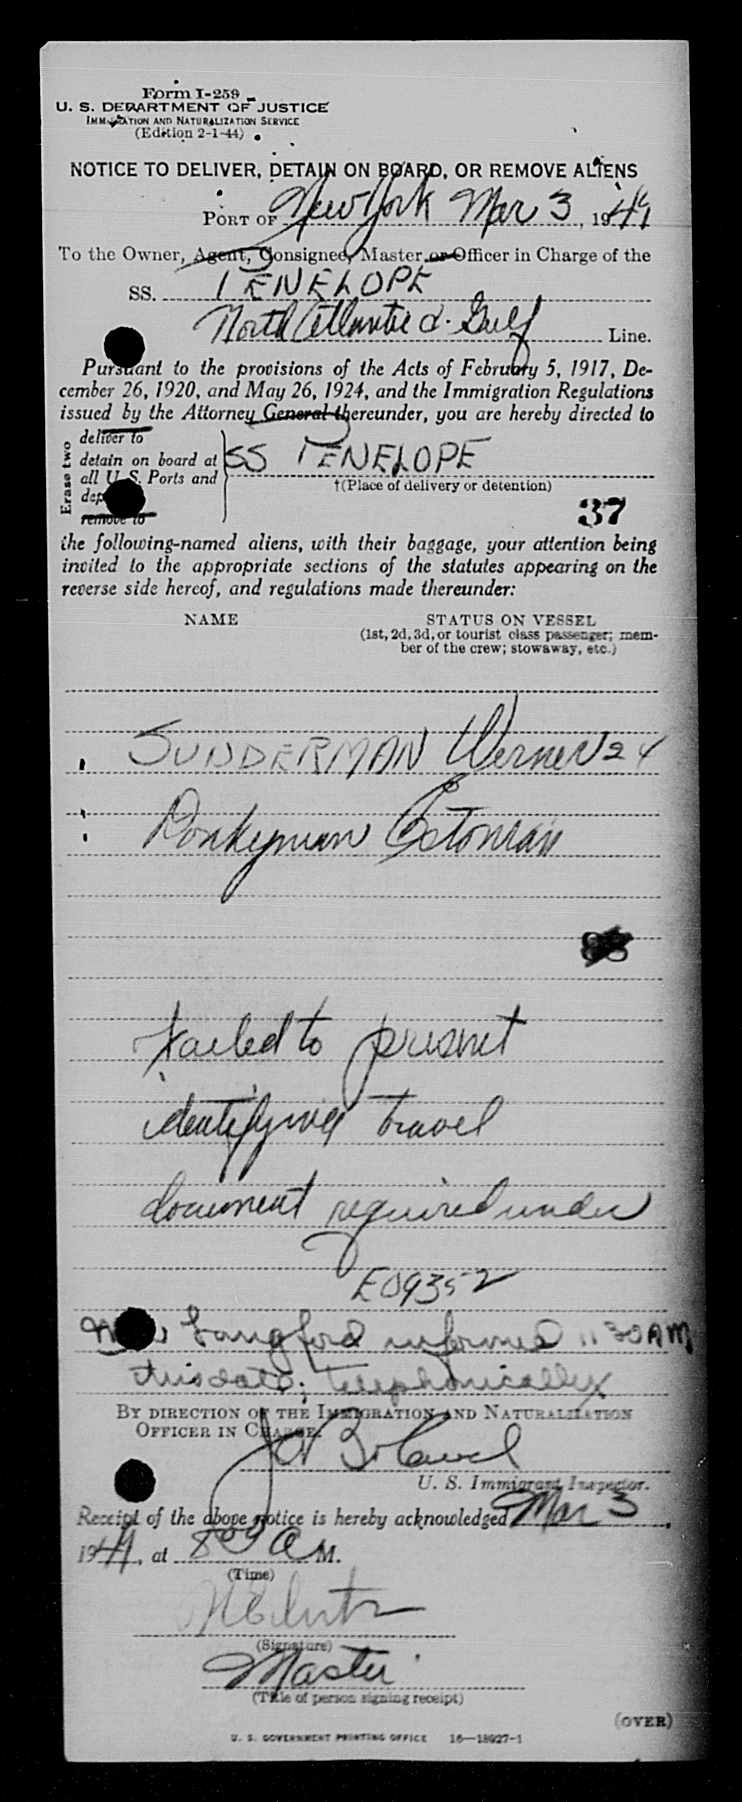 Form I-259
U. S. DEPARTMENT OF JUSTICE
IMMIGRATION AND NATURALIZATION SERVICE
(Edition 2-1-44)
NOTICE TO DELIVER, DETAIN ON BOARD, OR REMOVE ALIENS
PORT OF New York Mar 3, 1949
To the Owner, Agent, Consignee, Master or Officer in Charge of the
SS. PENELOPE
North Atlantic & Gulf Line.
Pursuant to the provisions of the Acts of February 5, 1917, De-
cember 26, 1920, and May 26, 1924, and the Immigration Regulations
issued by the Attorney General thereunder, you are hereby directed to
Erase two
deliver to
detain on board at
all U. S. Ports and
dep
remove to
SS PENELOPE
†(Place of delivery or detention)
37
the following-named aliens, with their baggage, your attention being
invited to the appropriate sections of the statutes appearing on the
reverse side hereof, and regulations made thereunder:
NAME STATUS ON VESSEL
(1st, 2d, 3d, or tourist class passenger; mem-
ber of the crew; stowaway, etc.)
SUNDERMAN Werner 24
Donkeyman Estonian
88
Failed to presnet
identifying travel
document required under
EO9352
Langford informed 11 30 AM
this date; telephonically
BY DIRECTION OF THE IMMIGRATION AND NATURALIZATION
OFFICER IN CHARGE.
U. S. Immigrant Inspector.
Receipt of the above notice is hereby acknowledged Mar 3,
1949, at 8 A M.
(Time)
(Signature)
Master
(Title of person signing receipt)
(OVER)
U. S. GOVERNMENT PRINTING OFFICE 16—18927-1